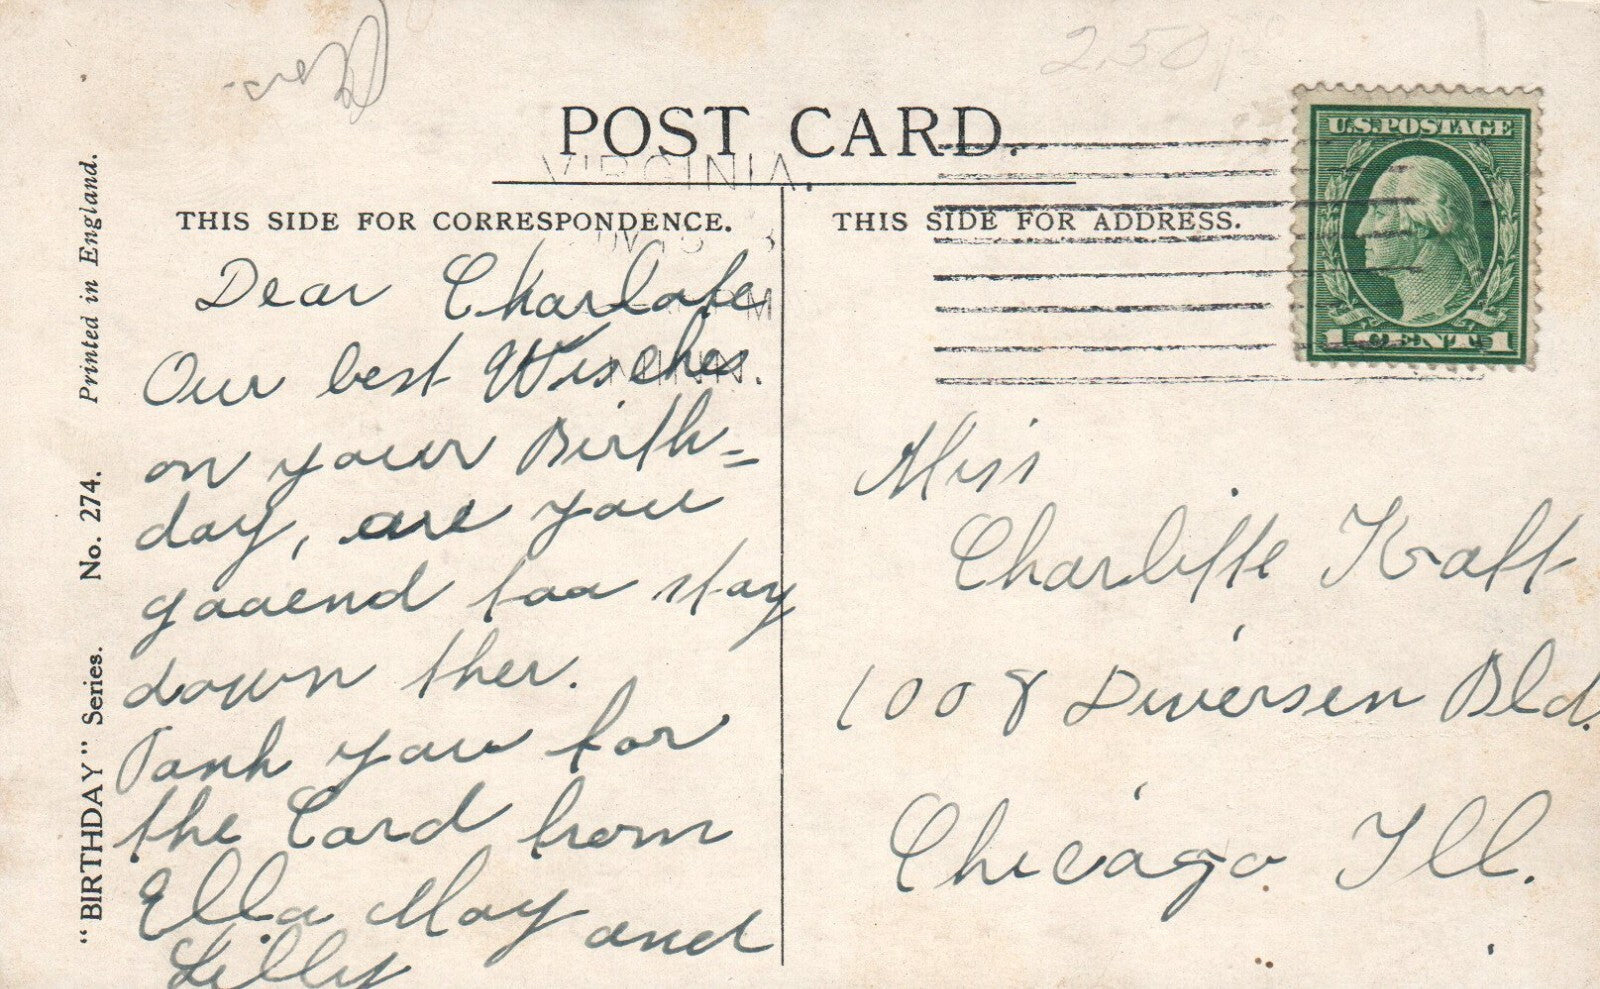 2.50
POST CARD.
VIRGINIA.
MINN.
U.S. POSTAGE
1 CENT 1
THIS SIDE FOR CORRESPONDENCE.
Dear Charlote
Our best Wisches
on your Birth=
day, are you
gaaend taa stay
down ther.
Tank you for
the Card from
Ella May and
Lilly
THIS SIDE FOR ADDRESS.
Miss
Charlitte Kraft
1008 Diversen Bld.
Chicago Ill.
"BIRTHDAY" Series. No. 274. Printed in England.